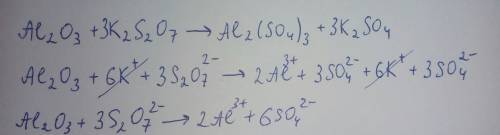 Al₂O₃ + 3K₂S₂O₇ → Al₂(SO₄)₃ + 3K₂SO₄
Al₂O₃ + 6K⁺ + 3S₂O₇²⁻ → 2Al³⁺ + 3SO₄²⁻ + 6K⁺ + 3SO₄²⁻
Al₂O₃ + 3S₂O₇²⁻ → 2Al³⁺ + 6SO₄²⁻